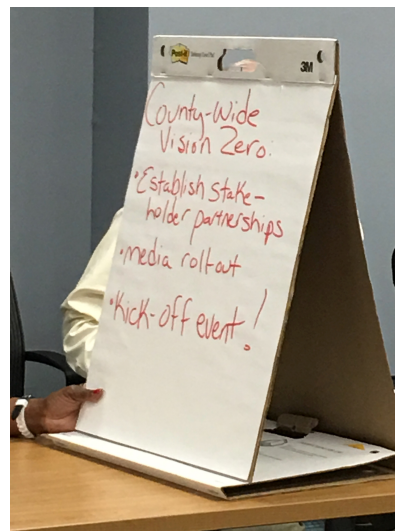 Post-it
3M
County-Wide
Vision Zero:
• Establish stake-
holder partnerships
• media rollout
• Kick-off event!